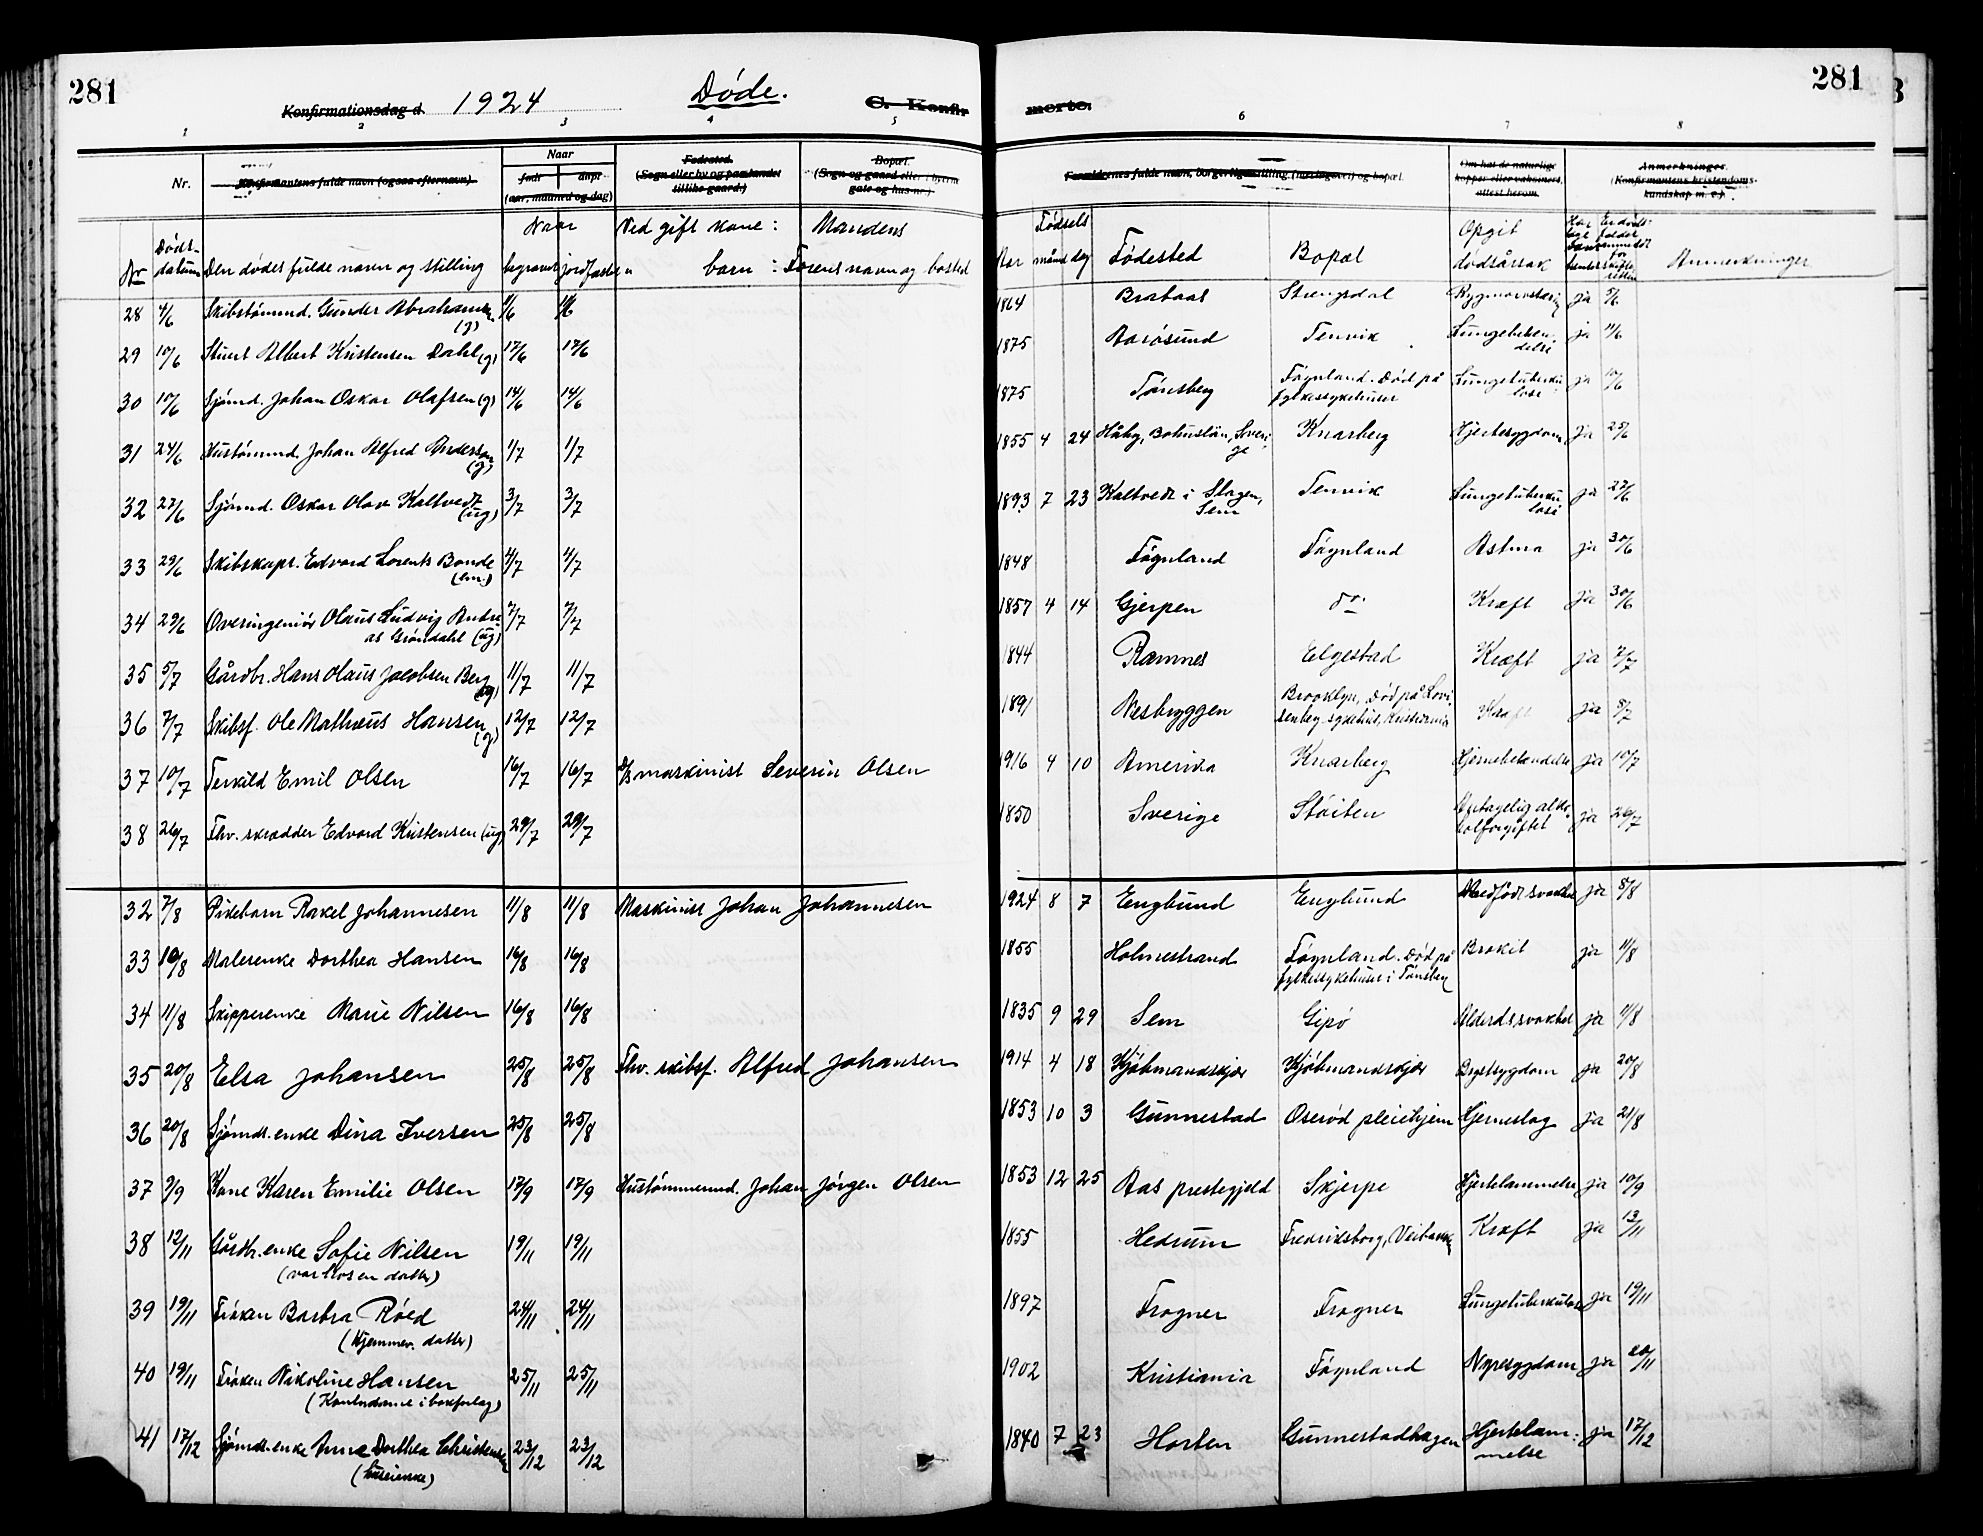 281
Konfirmationsdag d. 1924 Døde. C. Konfir
merte. 281
1 2 3 4 5
6 7 8
Nr. Konfirmantens fulde navn (ogsaa efternavn) Naar
født døpt
(aar, maaned og dag)
Fødested.
(Sogn eller by og paa landet
tillike gaard.)
Bopæl.
(Sogn og gaard eller i byerne
gate og hus-nr.)
Forældrenes fulde navn, borgerlige stilling (næringsvei) og bopæl.
Om hat de naturlige
kopper eller vaksineret,
attest herom.
Anmerkninger.
(Konfirmantens kristendoms-
kundskap m. v.)
Nr Døds-datum Den dødes fulde navn og stilling Naar begravet jordfæstet
Ved gift kone: Mandens
" barn: Farens navn og bosted
Fødsels Aar måned dag Fødested Bopæl Opgit dødsårsak Anmerkninger
28 4/6 Skibstømmd. Gunder Abrahamsen (g) 11/6 11/6 1864 Brataas Strengsdal Rygmarvstæring ja 5/6
29 10/6 Stuert Albert Kristensen Dahl (g) 17/6 17/6 1875 Aarøsund Tenvik Lungebeten-delse ja 11/6
30 10/6 Sjømd. Johan Oskar Olafsen (g) 14/6 14/6 1875 Tønsberg Føynland. Død på fylkessykehuset Lungetuberku-lose ja 10/6
31 24/6 Hustømmd. Johan Alfred Andersson (g) 1/7 1/7 1855 4 24 Håby, Bohuslän, Sveri-ge Knarberg Hjertesygdom ja 25/6
32 27/6 Sjømd. Oskar Olav Kaltvedt (ug) 3/7 3/7 1893 7 23 Kaltvedt i Slagen, Sem Tenvik Lungetuberku-lose ja 27/6
33 29/6 Skibskapt. Edvard Lorents Bonde (em.) 4/7 4/7 1848 Føynland Føynland Astma ja 30/6
34 29/6 Overingeniør Olaus Ludvig Andre-as Grøndahl (ug) 7/7 7/7 1857 4 14 Gjerpen do. Kræft ja 30/6
35 5/7 Gårdbr. Hans Olaus Jacobsen Berg (ug) 11/7 11/7 1844 Ramnes Elgestad Kræft ja 7/7
36 7/7 Skibsf. Ole Mathæus Hansen (g) 12/7 12/7 1891 Nesbryggen Brooklyn, Død på Lovi-senberg sykehus, Kristiania Kræft ja 8/7
37 10/7 Terkild Emil Olsen 16/7 16/7 D/S maskinist Severin Olsen 1916 4 10 Amerika Knarberg Hjernebetendelse ja 10/7
38 26/7 Fhv. skrædder Edvard Kristensen (ug) 29/7 29/7 1850 Sverige Støiten Antagelig alko-holforgiftet ja 26/7
32 7/8 Pikebarn Rakel Johannesen 11/8 11/8 Maskinist Johan Johannesen 1924 8 7 Englund Englund Medfødt svakhet ja 8/8
33 10/8 Malerenke Dorthea Hansen 16/8 16/8 1855 Holmestrand Føynland. Død på fylkessykehuset i Tønsberg Brokit ja 11/8
34 11/8 Skipperenke Marie Nilsen 16/8 16/8 1835 9 29 Sem Gipø Alderdsvakhet ja 11/8
35 20/8 Elsa Johansen 25/8 25/8 Fhv. skibsf. Alfred Johansen 1914 4 18 Kjøbmandskjær Kjøbmandskjær Brystsygdom ja 20/8
36 20/8 Sjømds. enke Dina Iversen 25/8 25/8 1853 10 3 Gunnestad Oserød pleiehjem Hjerneslag ja 21/8
37 9/9 Kone Karen Emilie Olsen 17/9 17/9 Hustømmermd. Johan Jørgen Olsen 1853 12 25 Aas prestegjeld Skjerpe Hjertelammelse ja 10/9
38 12/11 Gårdbr. enke Sofie Nilsen (var hos en datter) 19/11 19/11 1855 Hedrum Fredriksborg, Veibakken Kræft ja 13/11
39 19/11 Frøken Barbra Røed (Hjemmev. datter) 24/11 24/11 1897 Frogner Frogner Lungetuberkulose ja 19/11
40 19/11 Frøken Nikoline Hansen (Kontordame i bokforlag) 25/11 25/11 1902 Kristiania Føynland Nyresygdom ja 20/11
41 17/12 Sjømds. enke Anna Dorthea Christensen (huseierske) 23/12 23/12 1840 7 23 Horten Gunnestadhagen Hjertelam-melse ja 17/12